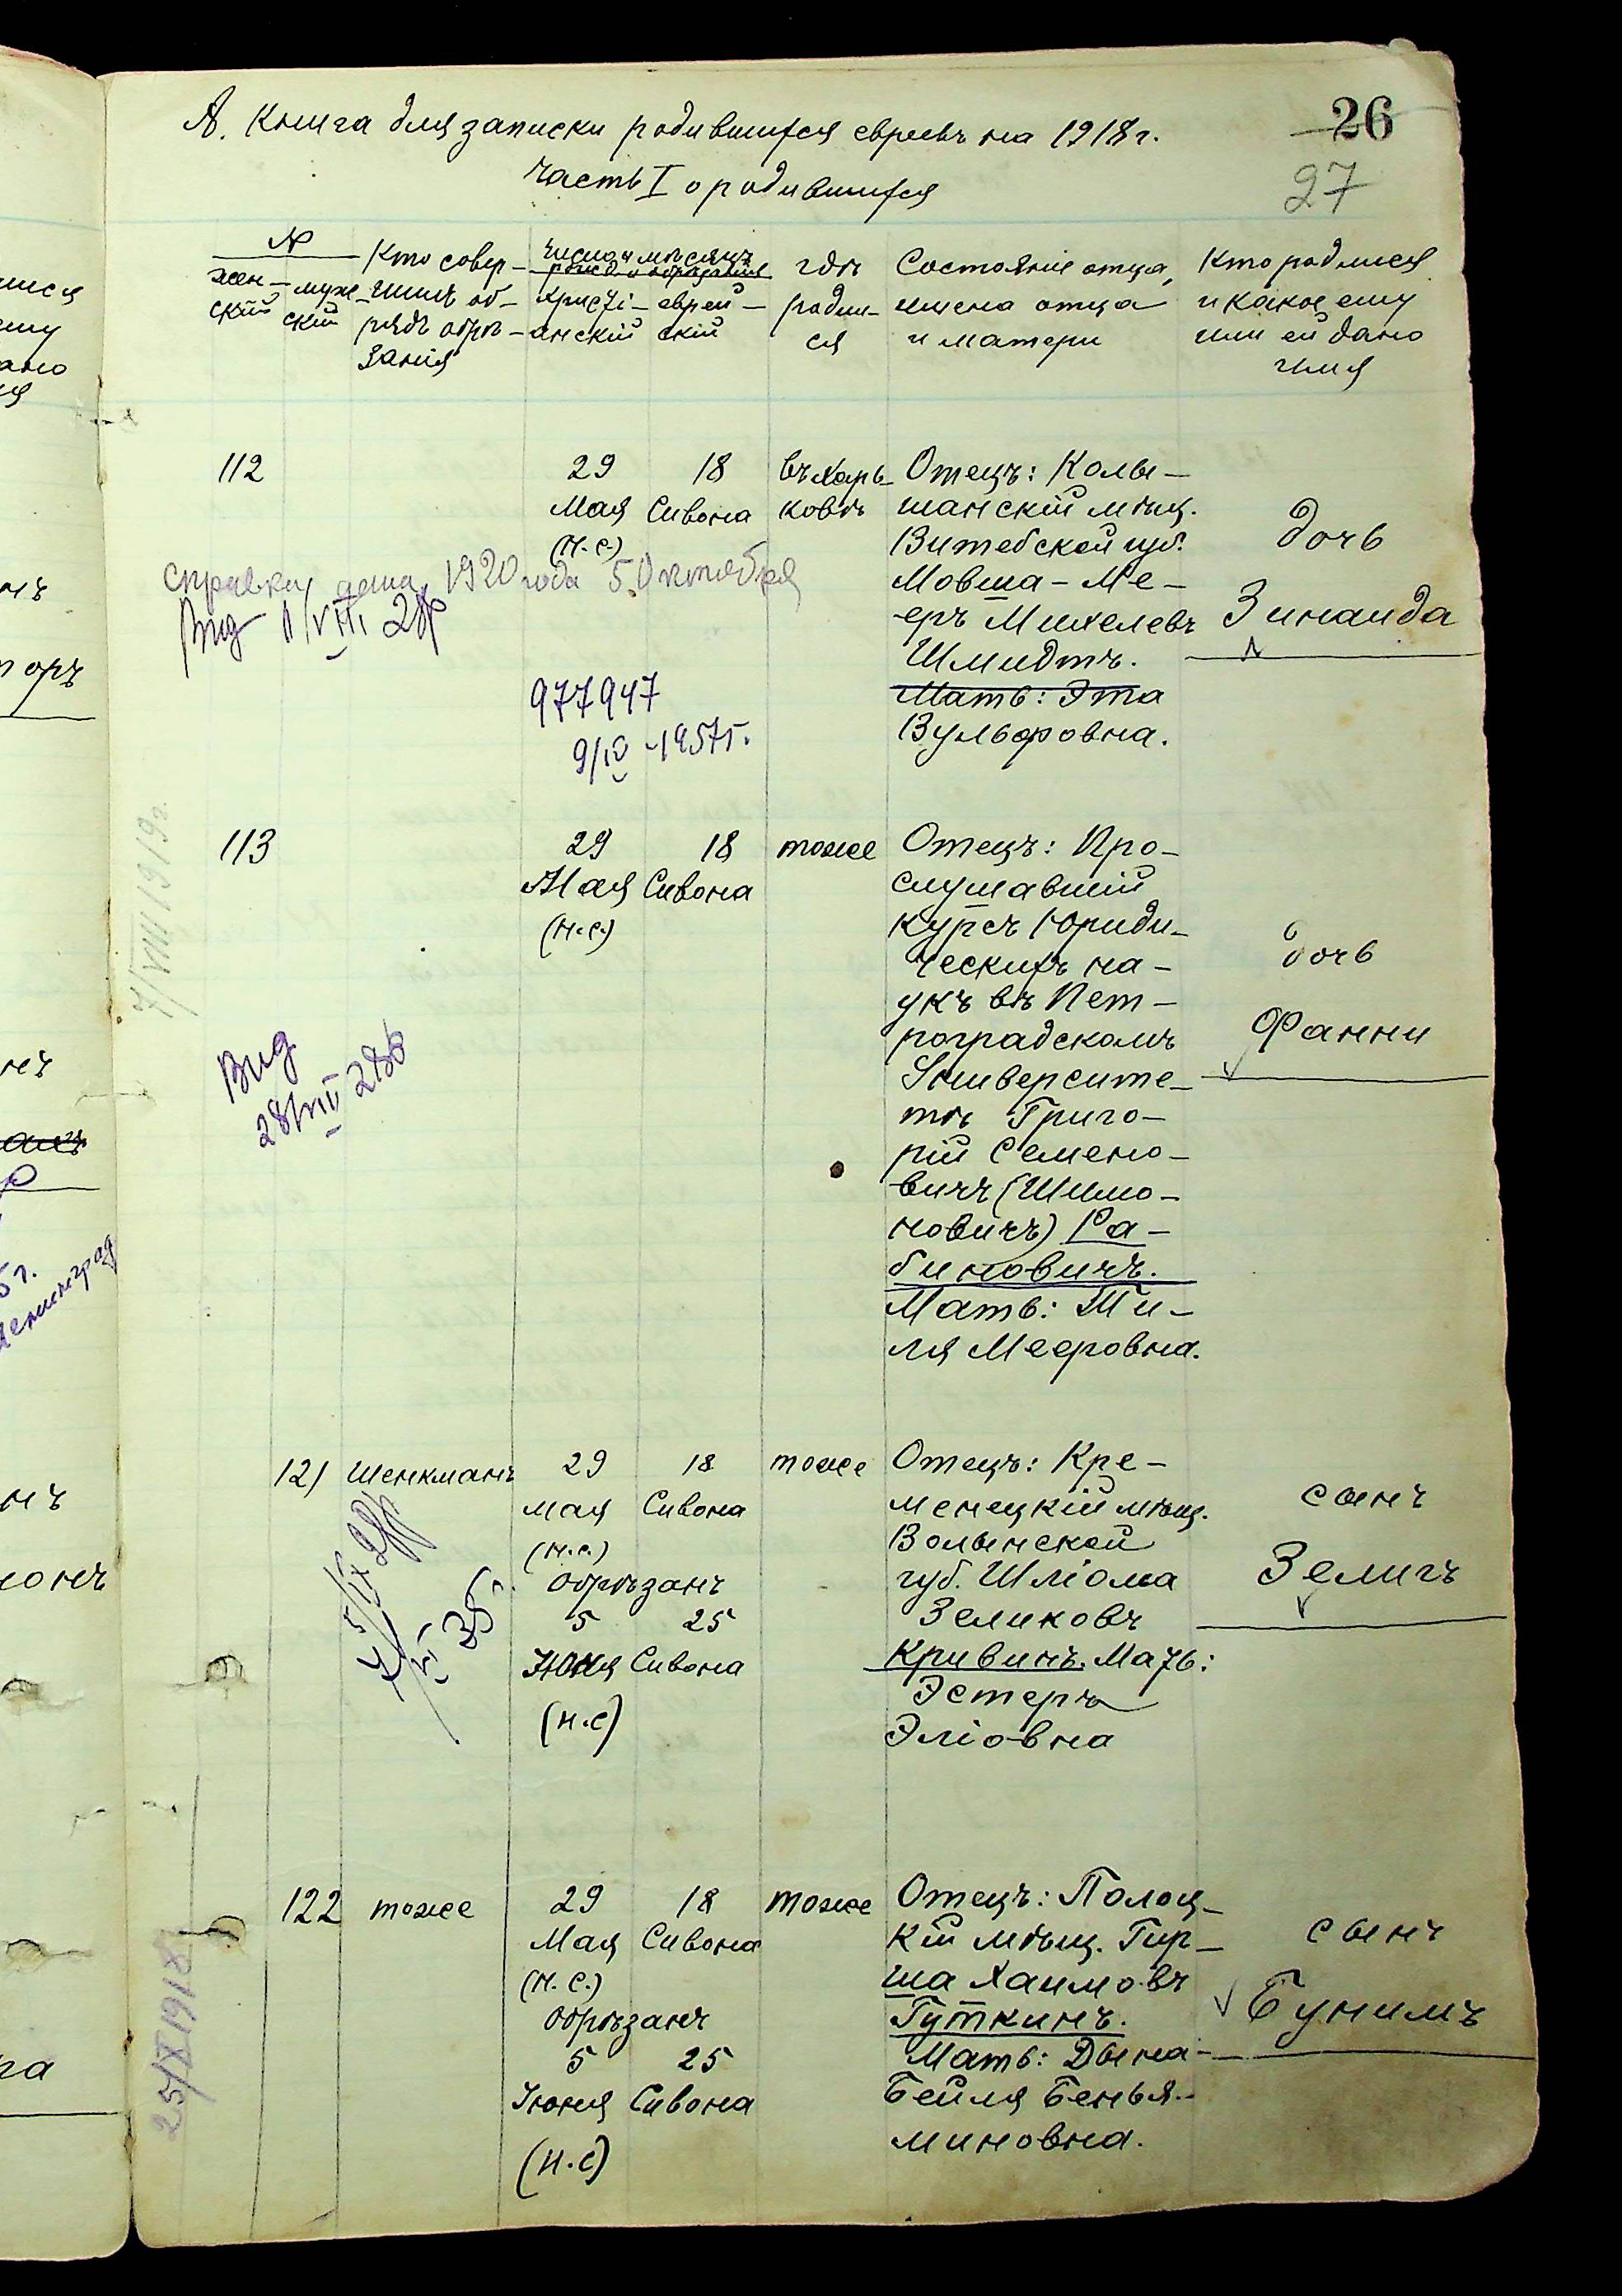 А. Книга для записки родившихся евреевъ на 1918 г.
26
27
Часть I о родившихся
№
жен-
скій
муж-
скій
Кто совер-
шилъ об-
рядъ обрѣ-
занія
Число и мѣсяцъ
рожд. и обрѣзанія
христі-
анскій
еврей-
скій
гдѣ
родил-
ся
Состояніе отца,
имена отца
и матери
Кто родился
и какое ему
или ей дано
имя
112
29
Мая
(н.с.)
18
Сивона
въ Харь-
ковѣ
Отецъ: Колы-
шанскій мѣщ.
Витебской губ.
Мовша-Ме-
еръ Михелевъ
Шмидтъ.
Мать: Эта
Вульфовна.
дочь
Зинаида
справку дана 1920 года 5 Октября
977947
9/IV-1957г.
113
29
Мая
(н.с.)
18
Сивона
тоже
Отецъ: Про-
слушавшій
курсъ Юриди-
ческихъ на-
укъ въ Пет-
роградскомъ
Университе-
тѣ Григо-
рій Семено-
вичъ (Шимо-
новичъ) Ра-
биновичъ.
Мать: Ти-
ля Мееровна.
дочь
Фанни
7/VIII 1919г.
121
Шенкманъ
29
мая
(н.с.)
обрѣзанъ
5
Юня
(н.с)
18
Сивона
25
Сивона
тоже
Отецъ: Кре-
менецкій мѣщ.
Волынской
губ. Шліома
Зеликовъ
Кривинъ. Мать:
Эстеръ
Эліовна
сынъ
Зелигъ
122
тоже
29
Мая
(н.с.)
обрѣзанъ
5
Іюня
(н.с)
18
Сивона
25
Сивона
тоже
Отецъ: Полоц-
кій мѣщ. Гир-
ша Хаимовъ
Гуткинъ.
Мать: Двейа-
Бейля Бенья-
миновна.
сынъ
Бунимъ
25/XI 1918